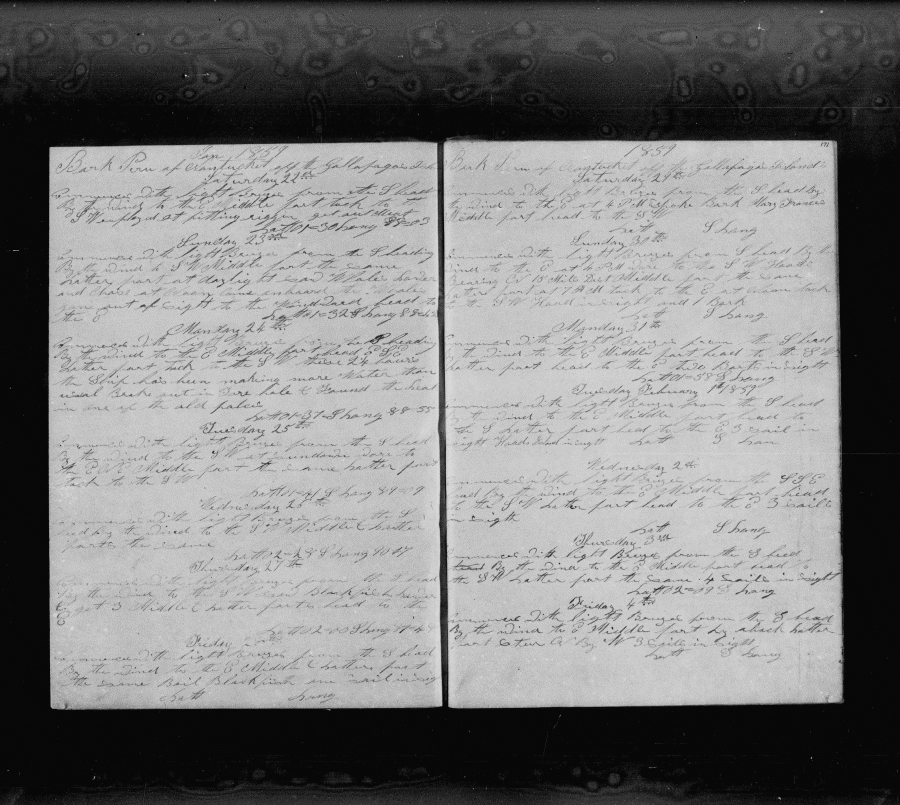 Jan 1859
Bark Peru of Nantucket off the Gallapagos Isl
Saturday 22nd
Commences with light Breeze from the S head
By the wind to the E Middle part tack to the
S W employed at fitting riggin got out
Latt 01=30 Long 89=03
Sunday 23rd
Commences with light Breeze from the S heading
By the wind to S W Middle part the same
Latter part at daylight
and chase at Noon the Whale
gone out of Sight to the Windward head to
the E Latt 01=32 S Long 88=
Monday 24th
Commences with light Breeze from the S heading
By the wind to the E Middle part head E S E
Latter part tack to the S W these 24 hours
the Ship has been making more Water than
usual Broke out in Fore hole & Found the leak
in one of the old places
Latt 01-37 S Long 88-55
Tuesday 25th
Commences with light Breeze from the S head
By the wind to the S W at Sundown wore to
the E Middle part the same Latter part
tack to the S W
Latt 01=41 S Long 89=09
Wednesday 26th
Commences with light Breeze from the S
head by the wind to the S W Middle & Latter
parts the same
Latt 02=28 S Long 90 17
Thursday 27th
Commences with light Breeze from the S head
by the wind to the S W saw Blackfish
got 3 Middle & Latter parts head to the
E
Latt 02=00 S Long
Friday 28th
Commences with light Breeze from the S head
By the wind to the E Middle & Latter part
the same Boil Blackfish one sail in sight
Latt Long
1859
Bark Peru of Nantucket off the Gallapagos Islands
Saturday 29th
Commences with light Breeze from the S head By
the wind to the E at 4 P M Spoke Bark Mary Frances
Middle part head to the S W
Latt S Long
Sunday 30th
Commences with light Breeze from S head By the
wind to the E at 4 P M wore to the S W Hoods
Bearing 15 Mile Dist Middle part the same
Latter part at 7 A M tack to the E at Noon tack
to the S W Hoods in sight and 1 Bark
Latt S Long
Monday 31th
Commences with light Breeze from the S head
By the wind to the E Middle part head to the S W
Latter part head to the E two Barks in sight
Latt 01=38 S Long
Tuesday February 1th 1859
Commences with light Breeze from the S head
By the wind to the E Middle part head to
the S Latter part head to the E 3 sail in
sight Hoods Island in sight Latt S Lon
Wednesday 2th
Commences with light Breeze from the SSE
head by the wind to the E Middle part head
to the S W Latter part head to the E 3 sails
in sight
Latt S Long
Thursday 3th
Commences with light Breeze from the S head
By the wind to the E Middle part head to
the S W Latter part the same 4 sails in sight
Latt 02=09 S Long
Friday 4th
Commences with light Breeze from the S head
By the wind to E Middle part By Latter
part Steer By W 3 Sails in sight
Latt S Long